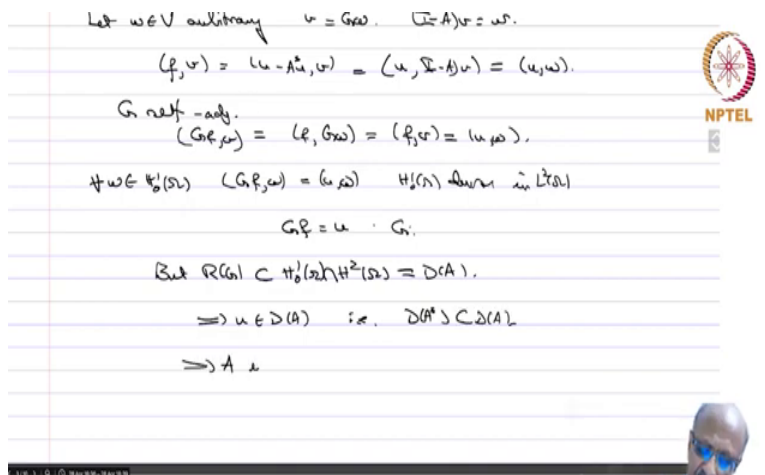 Let w∈V arbitrary v = Gw. (I-A)v = w.
(f,v) = (u-A*u,v) = (u,(I-A)v) = (u,w).
G self-adj.
(Gf,w) = (f,Gw) = (f,v) = (u,w).
∀w∈H₀¹(Ω) (Gf,w) = (u,w) H₀¹(Ω) dense in L²(Ω)
Gf = u . G.
But R(G) ⊂ H₀¹(Ω)∩H²(Ω) = D(A).
⇒ u∈D(A) i.e. D(A*) ⊂ D(A)
⇒ A
NPTEL